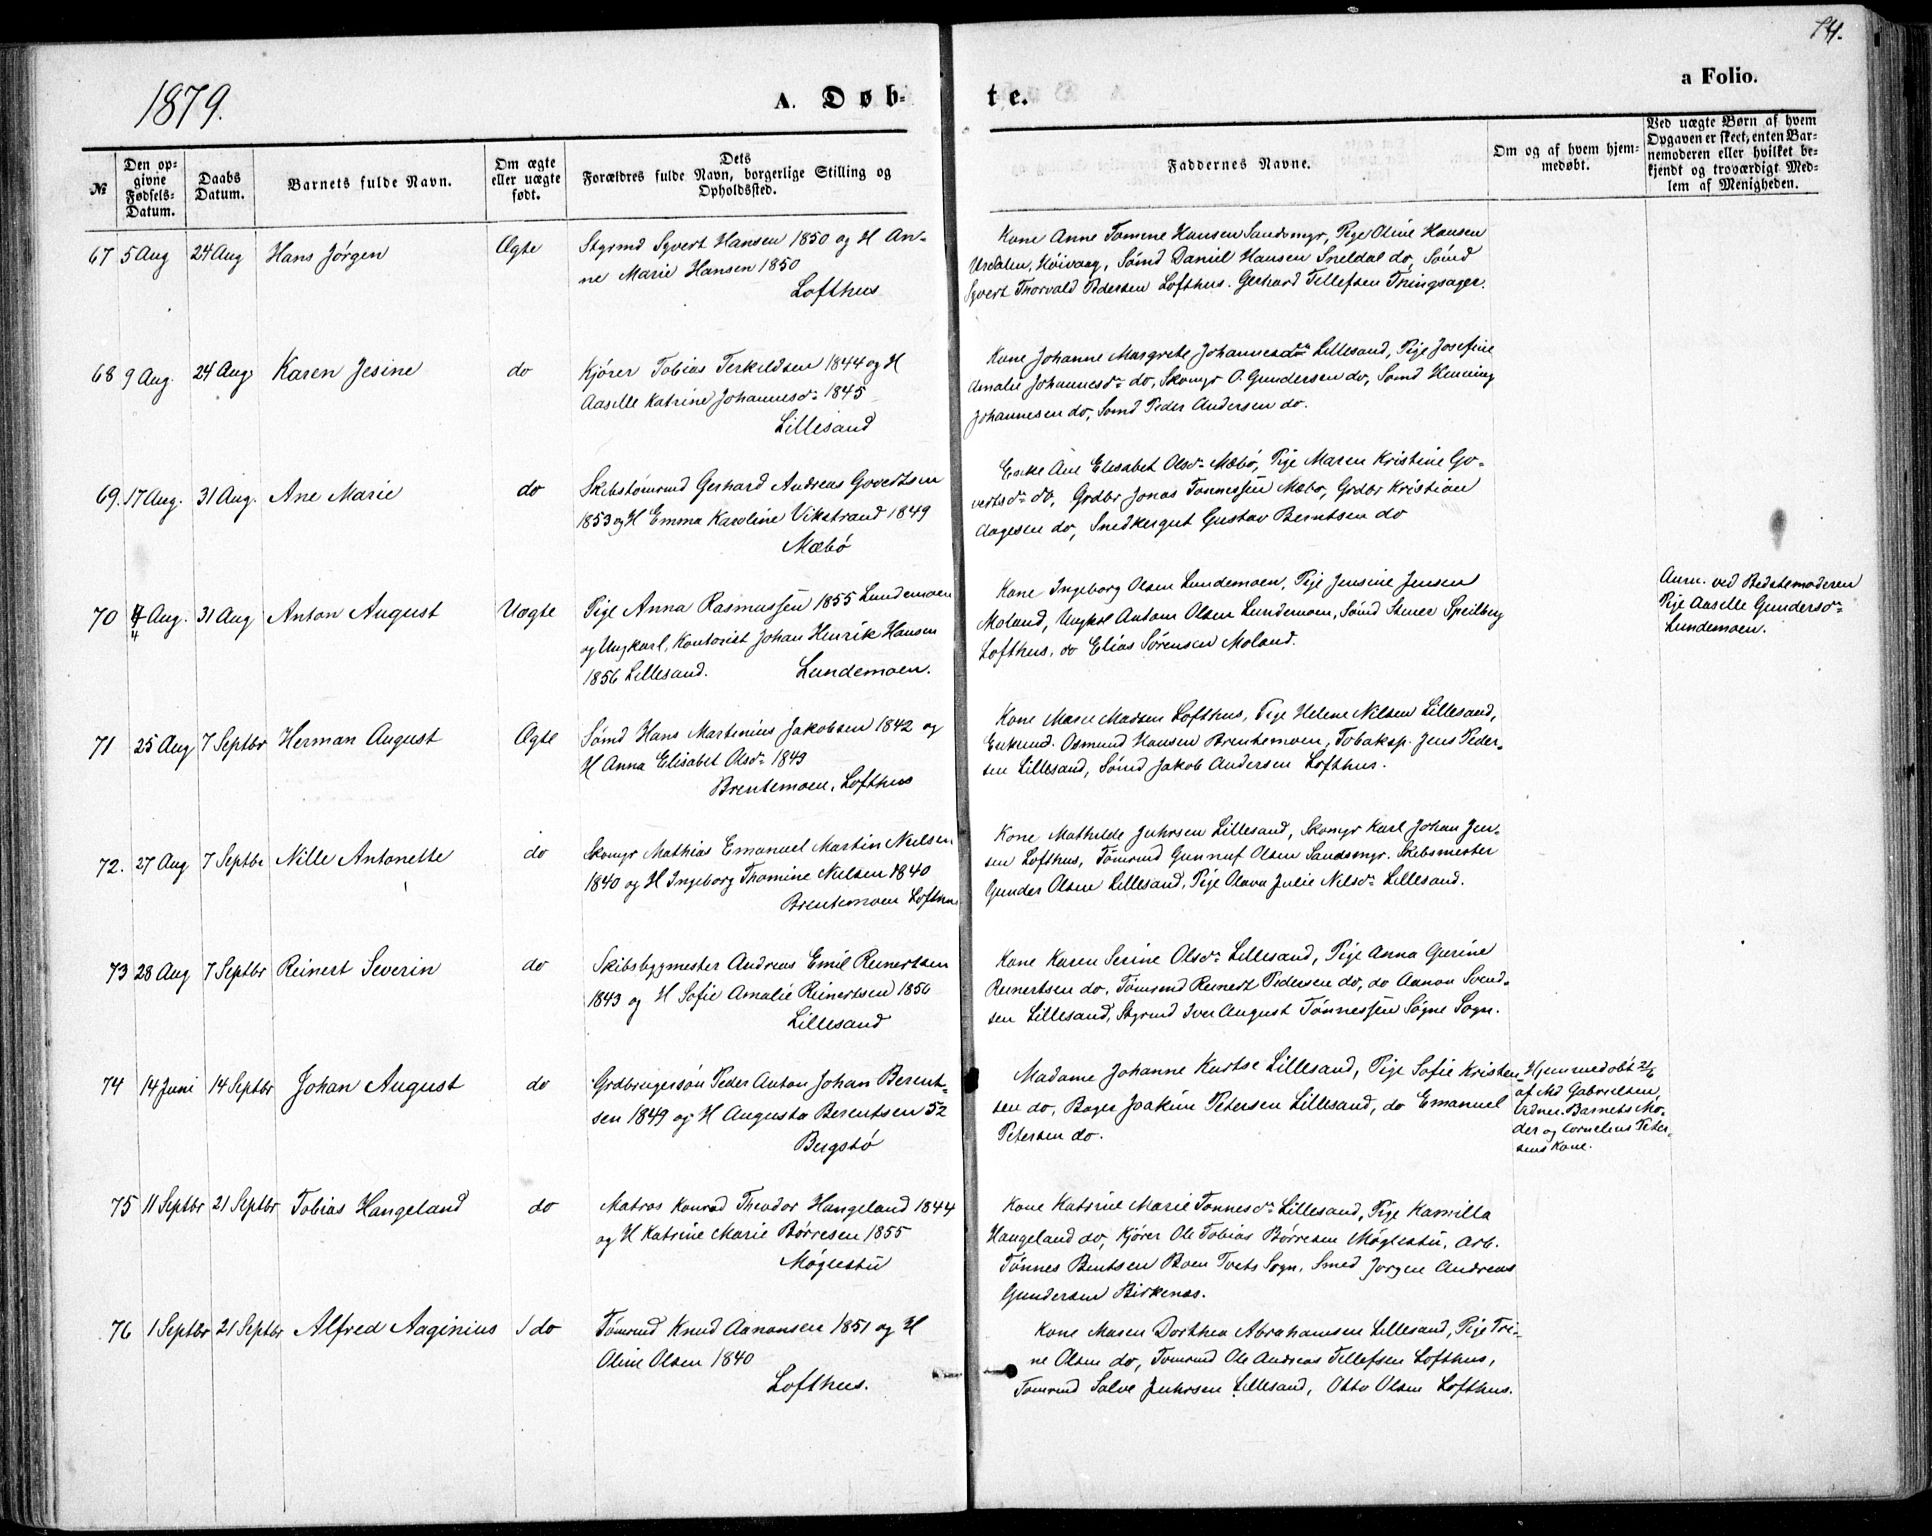 1879.
A. Døb-
te.
74.
a Folio.
№
Den op-
givne
Fødsels-
Datum.
Daabs
Datum.
Barnets fulde Navn.
Om ægte
eller uægte
født.
Dets
Forældres fulde Navn, borgerlige Stilling og
Opholdssted.
Faddernes Navne.
Om og af hvem hjem-
medøbt.
Ved uægte Børn af hvem
Opgaven er skeet, enten Bar-
nemoderen eller hvilket be-
kjendt og troværdigt Med-
lem af Menigheden.
67 5 Aug 24 Aug Hans Jørgen Ægte
Styrmd Syvert Hansen 1850 og H An-
ne Marie Hansen 1850
Lofthus
Kone Anne Tomine Hansen Sandsmyr, Pige Oline Hansen
Urdalen, Høivaag, Sømd Daniel Hansen Sneldal do, Sømd
Syvert Thorvald Pedersen Lofthus. Gerhard Tellefsen Tingsager.
68 9 Aug. 24 Aug Karen Jesine do
Kjører Tobias Terkildsen 1844 og H
Aaselle Katrine Johannesdr 1845
Lillesand
Kone Johanne Margrete Johannesdr Lillesand, Pige Josefine
Amalie Johannesdr do, Skomgr O. Gundersen do, Sømd Henning
Johannesen do, Sømd Peder Andersen do.
69. 17 Aug. 31 Aug. Ane Marie do
Skibstømrmd Gerhard Andreas Govertsen
1853 og H Emma Karoline Vikstrand 1849
Mæbø
Enke Ane Elisabet Olsdr Mæbø, Pige Maren Kristine Go-
vertsdr do, Grdbr Jonas Tønnessen Mæbø, Grdbr Kristian
Aagesen do, Snedkergut Gustav Berntsen do
70 4 Aug. 31 Aug Anton August Uægte
4
Pige Anna Rasmussen 1855 Lundemoen
og Ungkarl, Kontorist Johan Henrik Hansen
1856 Lillesand. Lundemoen.
Kone Ingeborg Olsen Lundemoen, Pige Jensine Jensen
Moland, Ungkrl Antom Olsen Lundemoen, Sømd Stener Speilberg
Lofthus, do Elias Sørensen Moland.
Anm. ved Bedstemoderen
Pige Aaselle Gundersdr
Lundemoen.
71 25 Aug 7 Septbr Herman August Ægte
Sømd Hans Martinius Jakobsen 1842 og
H Anna Elisabet Olsdr 1849
Brentemoen, Lofthus
Kone Maren Madsen Lofthus, Pige Helene Nilsen Lillesand,
Enkemd. Osmund Hansen Brentemoen, Tobaksp. Jens Peder-
sen Lillesand, Sømd Jakob Andersen Lofthus.
72. 27 Aug 7 Septbr Nille Antonette do
Skomgr Mathias Emanuel Martin Nielsen
1840 og H Ingeborg Thomine Nielsen 1840
Brentemoen Lofthus
Kone Mathilde Juhrsen Lillesand, Skomgr Karl Johan Jen-
sen Lofthus, Tømrmd Gunnuf Olsen Sandsmyr. Skibsmester
Gunder Olsen Lillesand, Pige Olava Julie Nilsdr Lillesand.
73 28 Aug 7 Septbr Reinert Severin do
Skibsbygmester Andreas Emil Reinertsen
1843 og H Sofie Amalie Reinertsen 1850
Lillesand
Kone Karen Serine Olsdr Lillesand, Pige Anna Gurine
Reinertsen do, Tømrmd Reinert Pedersen do, do Aanon Svend-
sen Lillesand, Styrmd Iver August Tønnessen Søgne Sogn.
74 14 Juni 14 Septbr Johan August do
Grdbrugersøn Peder Anton Johan Berent-
sen 1849 og H Augusta Berentsen 52
Bergstø
Madame Johanne Kurtse Lillesand, Pige Sofie Kristen-
sen do, Bager Joakim Petersen Lillesand, do Emanuel
Petersen do.
Hjemmedøbt 21/6
af Md Gabrielsen,
Vidner. Barnets Mo-
der og Cornelius Peter-
sens Kone.
75 11 Septbr 21 Septbr Tobias Hangeland do
Matros Konrad Theodor Hangeland 1844
og H Katrine Marie Børresen 1855
Møglestu
Kone Katrine Marie Tønnesdr Lillesand, Pige Kamilla
Hangeland do, Kjører Ole Tobias Børresen Møglestu, Arb.
Tønnes Bentsen Boen Tvets Sogn, Smed Jørgen Andreas
Gundersen Birkenæs.
76 1 Septbr 21 Septbr Alfred Aaginius do
Tømrmd Knud Aanonsen 1851 og H
Oline Olsen 1840
Lofthus.
Kone Maren Dorthea Abrahamsen Lillesand, Pige Tri-
ne Olsen do, Tømrmd Ole Andreas Tellefsen Lofthus,
Tømrmd Salve Juhrsen Lillesand, Otto Olsen Lofthus.